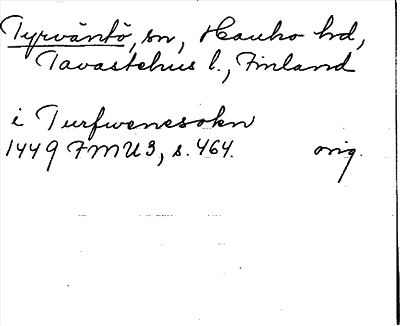 Tyrväntö, sn, Hauho hd,
Tavastehus l., Finland
i Turfwenesokn
1449 FMU 3, s. 464. orig.